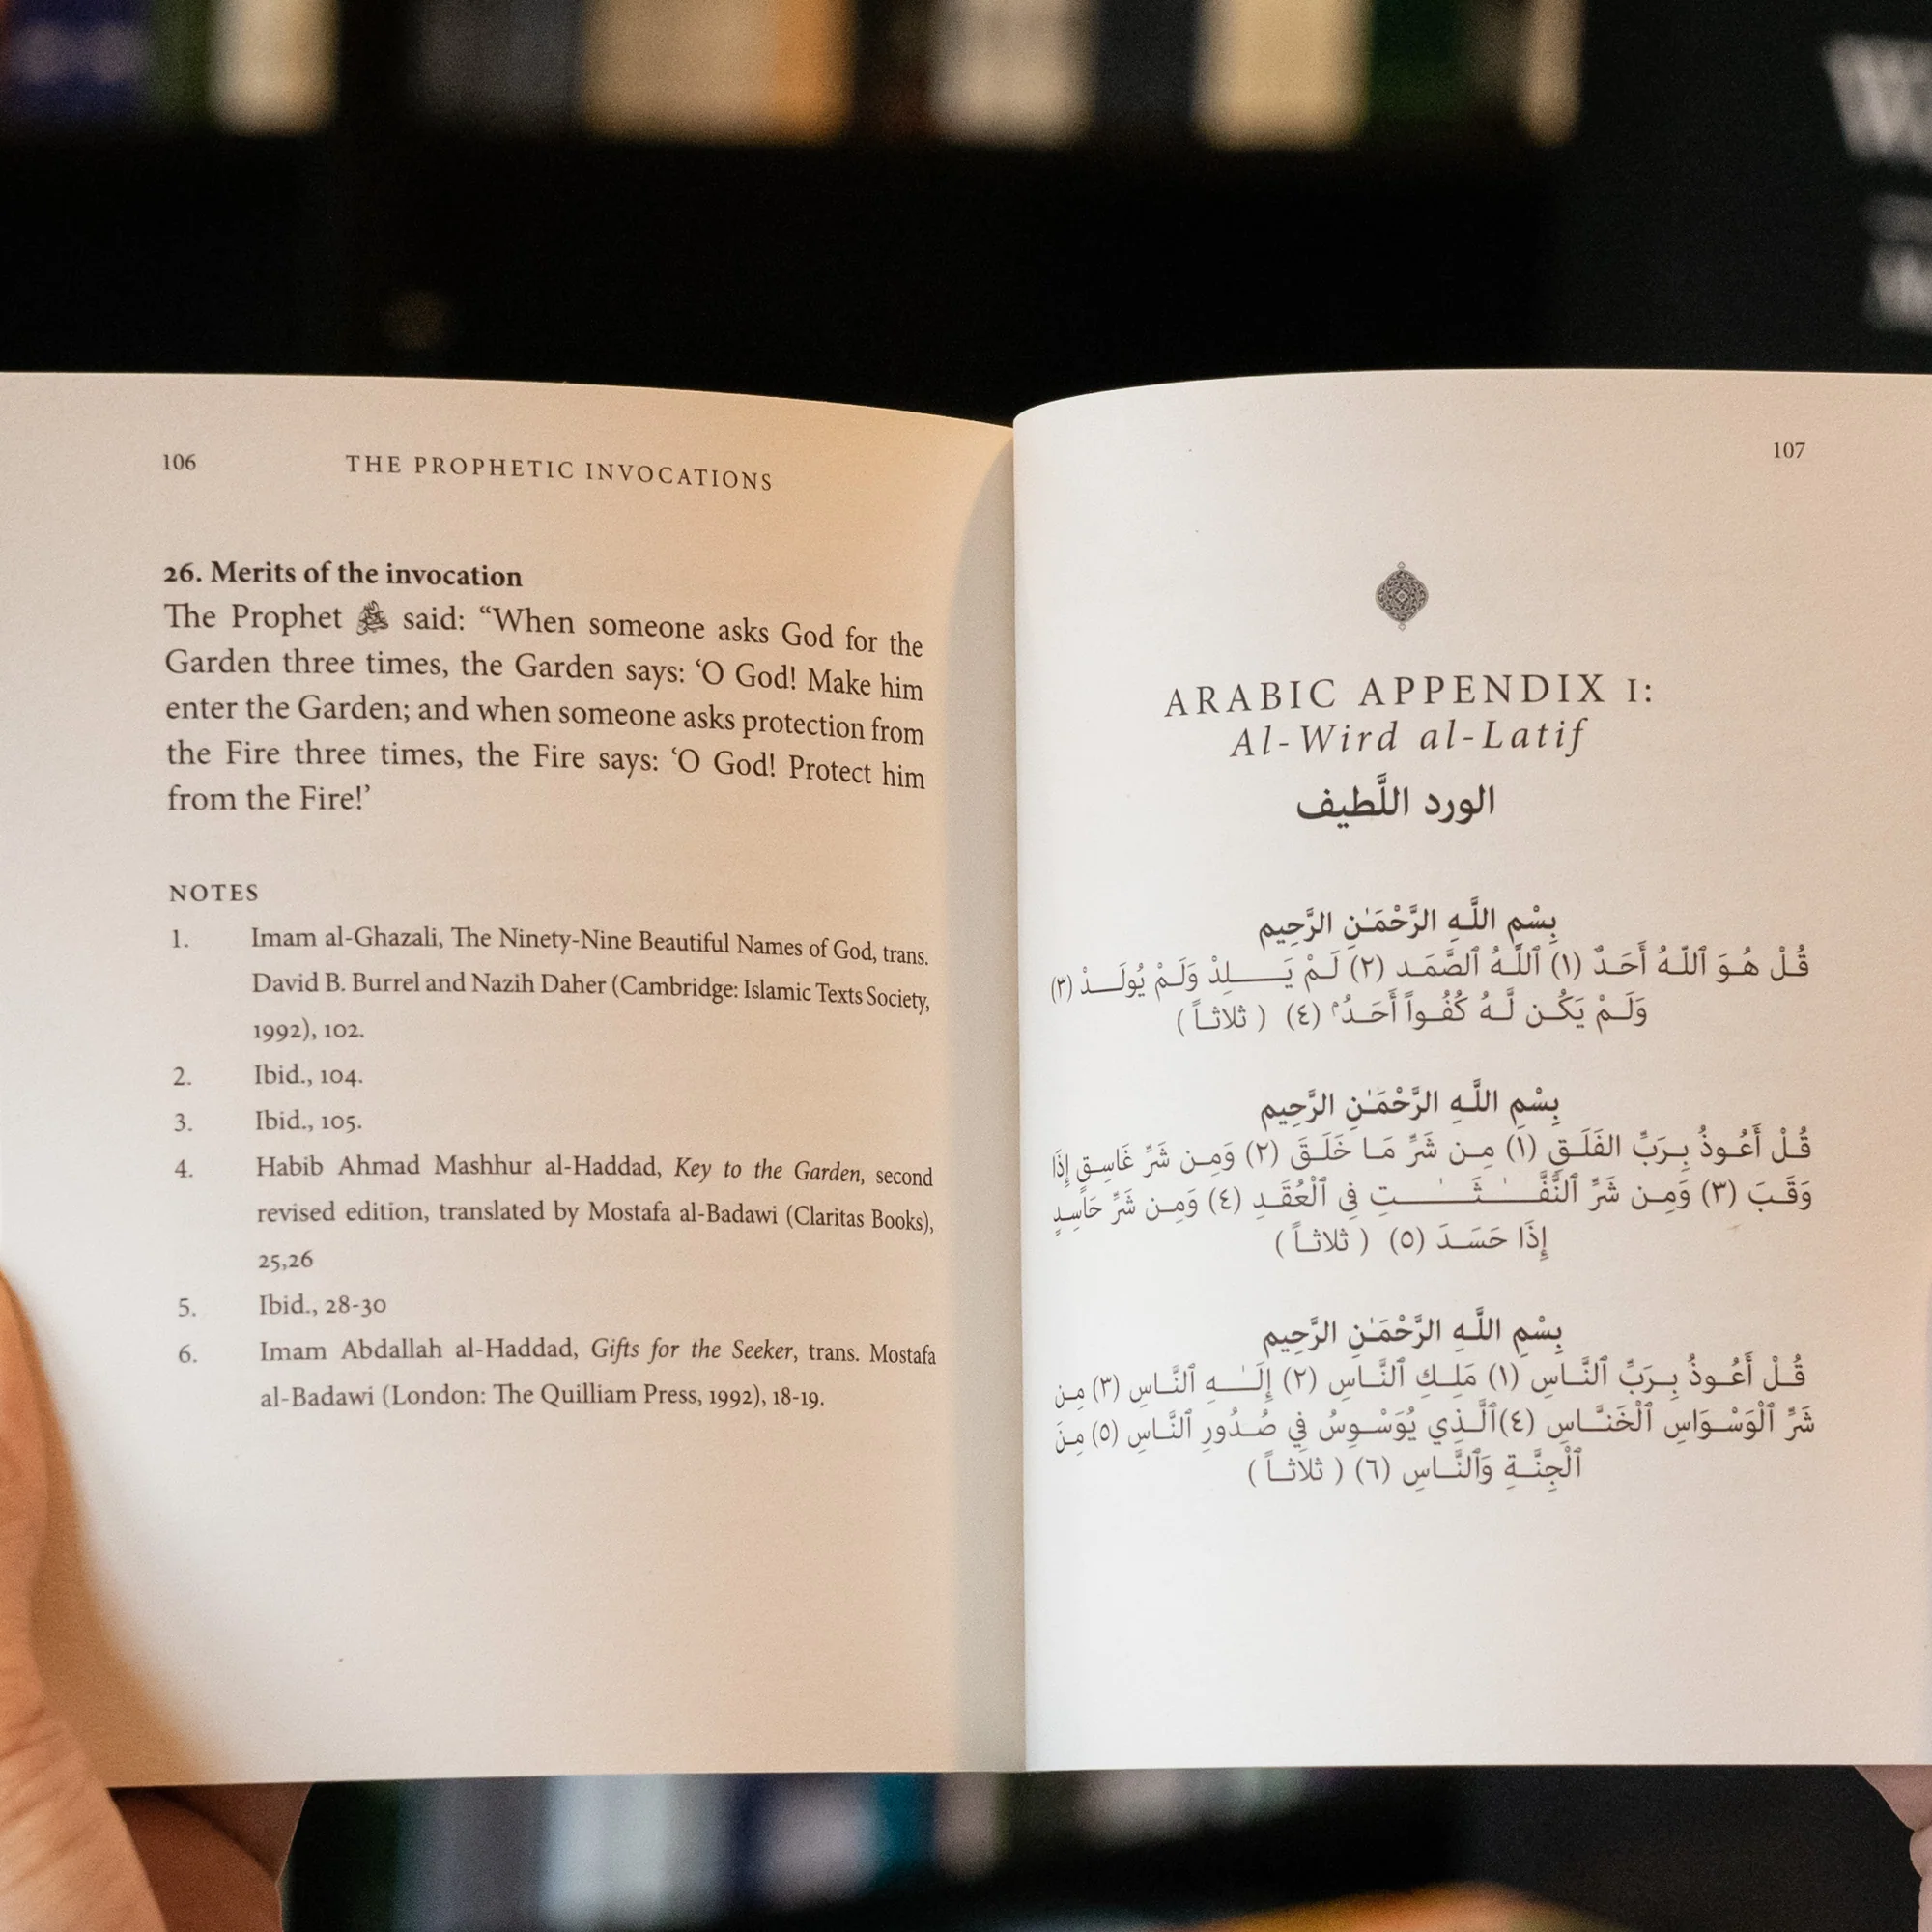 106
THE PROPHETIC INVOCATIONS
26. Merits of the invocation
The Prophet ﷺ said: “When someone asks God for the
Garden three times, the Garden says: ‘O God! Make him
enter the Garden; and when someone asks protection from
the Fire three times, the Fire says: ‘O God! Protect him
from the Fire!’
NOTES
1. Imam al-Ghazali, The Ninety-Nine Beautiful Names of God, trans.
David B. Burrel and Nazih Daher (Cambridge: Islamic Texts Society,
1992), 102.
2. Ibid., 104.
3. Ibid., 105.
4. Habib Ahmad Mashhur al-Haddad, Key to the Garden, second
revised edition, translated by Mostafa al-Badawi (Claritas Books),
25,26
5. Ibid., 28-30
6. Imam Abdallah al-Haddad, Gifts for the Seeker, trans. Mostafa
al-Badawi (London: The Quilliam Press, 1992), 18-19.
107
ARABIC APPENDIX I:
Al-Wird al-Latif
الورد اللَّطيف
بِسْمِ اللَّـهِ الرَّحْمَـٰنِ الرَّحِيم
قُـلْ هُـوَ ٱللَّـهُ أَحَـدٌ (١) ٱللَّـهُ ٱلصَّمَـد (٢) لَـمْ يَـــلِدْ وَلَـمْ يُولَـــدْ (٣)
وَلَـمْ يَكُـن لَّـهُ كُفُـواً أَحَـدُۢ (٤) ( ثلاثـاً )
بِسْمِ اللَّـهِ الرَّحْمَـٰنِ الرَّحِيم
قُـلْ أَعُـوذُ بِـرَبِّ الفَلَـقِ (١) مِـن شَرِّ مَـا خَلَـقَ (٢) وَمِـن شَرِّ غَاسِـقٍ إِذَا
وَقَـبَ (٣) وَمِـن شَرِّ ٱلنَّفَّـــٰـثَـــٰـتِ فِى ٱلْعُقَـدِ (٤) وَمِـن شَرِّ حَاسِـدٍ
إِذَا حَسَـدَ (٥) ( ثلاثـاً )
بِسْمِ اللَّـهِ الرَّحْمَـٰنِ الرَّحِيم
قُـلْ أَعُـوذُ بِـرَبِّ ٱلنَّـاسِ (١) مَلِـكِ ٱلنَّـاسِ (٢) إِلَـــٰـهِ ٱلنَّـاسِ (٣) مِـن
شَرِّ ٱلْوَسْـوَاسِ ٱلْخَنَّـاسِ (٤)ٱلَّـذِي يُوَسْـوِسُ فِي صُـدُورِ ٱلنَّـاسِ (٥) مِـنَ
ٱلْجِنَّـةِ وَٱلنَّـاسِ (٦) ( ثلاثـاً )